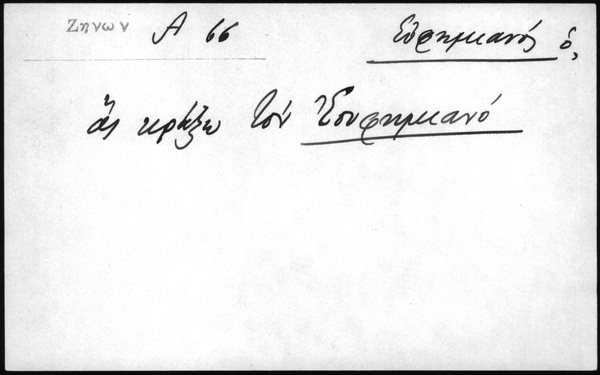 Ζηνων Α 66 Εὐφημιανός ὁ,
ἄς κράξω τόν Ἐουφημιανό